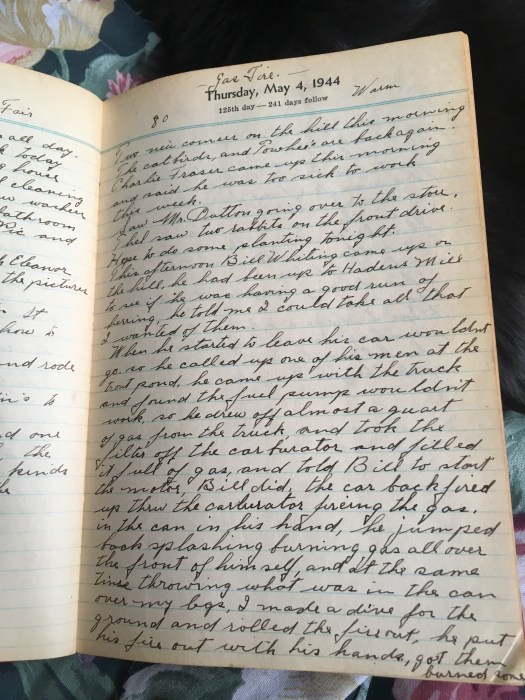 Fair
all day.
today
house
cleaning
washer
Bathroom
and
Eleanor
the pictures
It
how is
and rode
in's is
and one
the
kinds
Gas Fire. —
Thursday, May 4, 1944
125th day — 241 days follow
80
Warm
Two new comers on the hill this morning
The catbirds, and Towhee's are back again.
Charlie Fraser came up this morning
and said he was too sick to work
this week.
Saw Mr. Dutton going over to the store.
Ethel saw two rabbits on the front drive.
Hope to do some planting tonight.
This afternoon Bill Whiting came up on
the hill, he had been up to Hadens Mill
to see if he was having a good run of
herring, he told me I could take all that
I wanted of them.
When he started to leave his car wouldnt
go so he called up one of his men at the
trout pond, he came up with the truck
and found the fuel pump wouldn't
work, so he drew off almost a quart
of gas from the truck and took the
filter off the carburator and filled
it full of gas, and told Bill to start
the motor, Bill did, the car backfired
up thru the carburator fireing the gas.
in the can in his hand, he jumped
back splashing burning gas all over
the front of himself, and at the same
time throwing what was in the can
over my legs, I made a dive for the
ground and rolled the fire out, he put
his fire out with his hands, got them
burned some